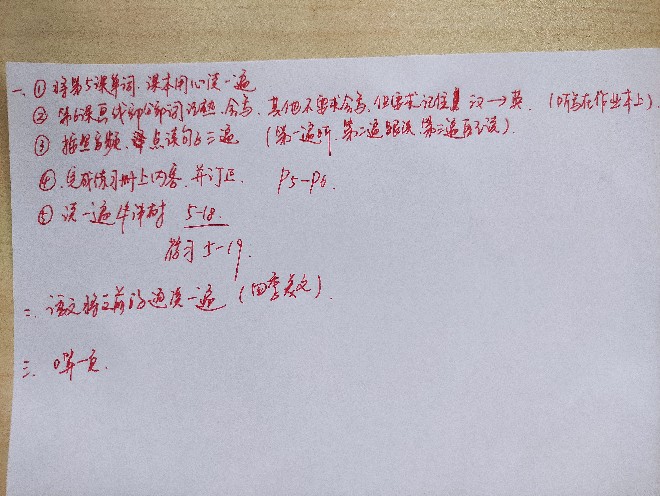 一、① 将第5课单词、课本用心读一遍
② 第6课画线部分单词 会写,其他不要求会写,但要求记住 汉→英 (听写在作业本上)
③ 按照音频,点读句6 三遍 (第一遍听,第二遍跟读,第三遍再读).
④ 完成练习册上内容,并订正 P5-P6.
⑤ 读一遍牛津树 5-18
学习 5-19.
二、语文将之前的通读一遍 (四季美文).
三、口算一页.